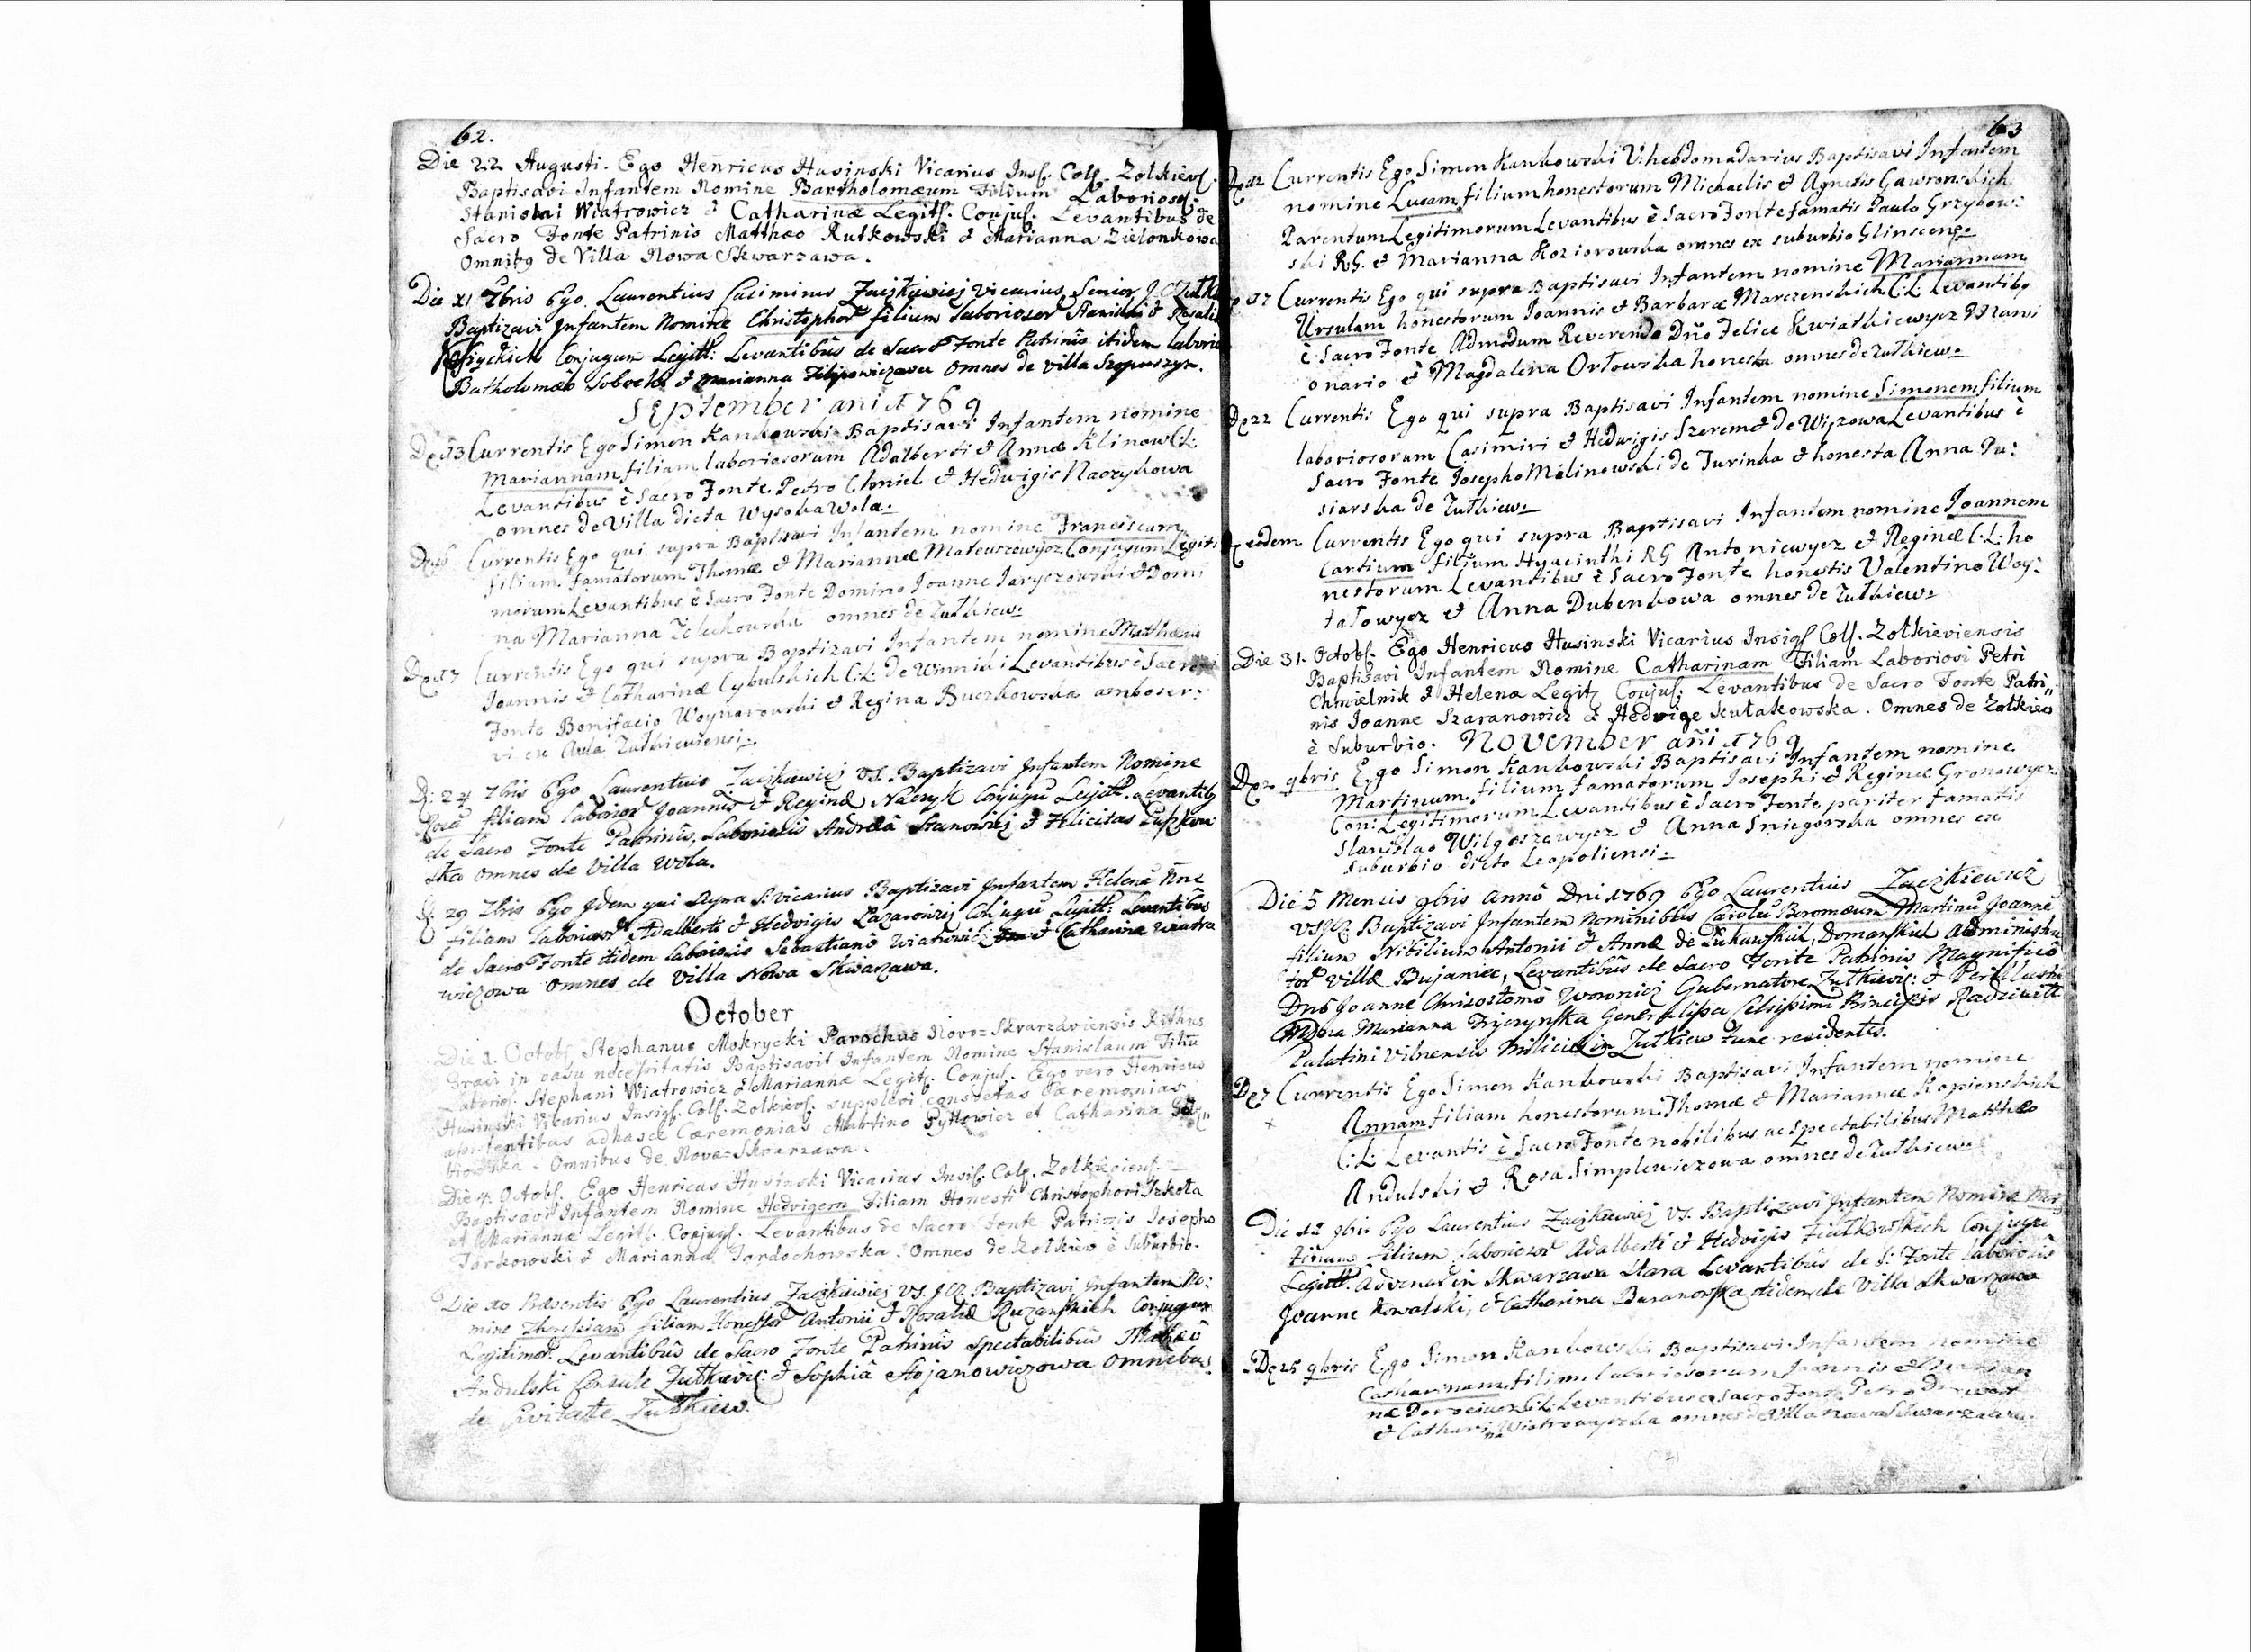 62.
Die 22 Augusti. Ego Henricus Husinski Vicarius Ins. Coll. Zolkiev.
Baptisavi Infantem Nomine Bartholomæum Filium Laborios.
Stanislai Wiatrowicz & Catharinæ Legit. Conjus. Levantibus de
Sacro Fonte Patrinis Matthæo Rutkowski & Marianna Zielonkowa
Omnibg de Villa Nowa Skwarzawa.
Die XI 7bris Ego Laurentius Casimirus Zaczkiewicz Vicarius Senior
Baptizavi Infantem Nomine Christophor filium Laborioser & Rosaliæ
Conjugum Legitt: Levantibûs de Sacro Fonte Patrinis itidem
Batholomæo & Marianna Filipowiczowa Omnes de Villa Szopuszyn.
September ani 1769
D 13 Currentis Ego Simon Kankowski Baptisavi Infantem nomine
Mariannam filiam laboriosorum Adalberti & Annæ Klinow C:L:
Levantibus è Sacro Fonte Petro Chmiel & Hedwigis Naczykowa
omnes de Villa dicta Wysoka Wola.
Currentis Ego qui supra Baptisavi Infantem nomine Franciscam
filiam famatorum Thomæ & Mariannæ Mateuszewycz Conjugum Legiti
morum Levantibus è Sacro Fonte Domino Joanne Jaryczowski & Domi
na Marianna Zelechowska omnes de Zułkiew.
D 17 Currentis Ego qui supra Baptizavi Infantem nomine
Joannis & Catharinæ Cybulskich C:L: de Winniki Levantibus è Sacro
Fonte Bonifacio Woynarowski & Regina Buczkowska amboser:
vi ex Aula Zułkiewiensi.
D: 24 7bris Ego Laurentius Zaczkiewicz VS. Baptizavi Infantem Nomine
Rosã filiam Labor Joannis & Reginæ Naczyk Conjugû Legitt. Levantibg
de Sacro Fonte Patrinis, Laboriosis Andreâ Stanowicz & Felicitas
ska omnes de Villa Wola.
D. 29 7bris Ego Idem qui supra S: Vicarius Baptizavi Infantem Helenã Nne
filiam Laborios Adalberti & Hedvigis Lazarowicz Conjugû Legitt: Levantibus
de Sacro Fonte itidem Laboriosis Sebastianô Wiatrowicz & Catharina Wiatro
wiczowa Omnes de Villa Nowa Skwarzawa.
October
Die 1. Octob. Stephanus Mokrycki Parochus Novo=Skvarzaviensis Rithus
Græci in casu necessitatis Baptisavit Infantem Nomine Stanislaum Filiû
Laborios. Stephani Wiatrowicz & Mariannæ Legit. Conjus. Ego vero Henricus
Husinski Vicarius Insig. Coll. Zolkievs. supplevi consvetas Cæremonias
assistentibus adhasce Cæremonias Martino Pyttowicz et Catharina
Omnibus de Nova=Skvarzawa.
Die 4. Octob. Ego Henricus Husinski Vicarius Insi. Coll. Zolkieviens.
Baptisavi Infantem Nomine Hedvigem Filiam Honesti Christophori Szkoła
et Mariannæ Legit. Conjug. Levantibus de Sacro Fonte Patrinis Josepho
Tarkowski & Marianna Tardochowska. Omnes de Zołkiew è Suburbio.
Die 10 Præsentis Ego Laurentius Zaczkiewicz VS. Baptizavi Infantem No:
mine Theresiam filiam Honestor Antonii & Rosaliæ Ruzanskich Conjugum
Legitimor. Levantibûs de Sacro Fonte Patrinis Spectabilibus Mathæô
Andulski Consule Zułkievi: & Sophiâ Stojanowiczowa Omnebus
de Civitatte Zułkiew.
63
D 12 Currentis Ego Simon Kankowski V: hebdomadarius Baptisavi Infantem
nomine Lucam filium honestorum Michaelis & Agnetis Gawronskich
Parentum Legitimorum Levantibus è Sacro Fonte famatis Paulo Grzybow:
ski R.G. & Marianna Koziorowska omnes ex suburbio Glinscens.
17 Currentis Ego qui supra Baptisavi Infantem nomine Mariannam
Ursulam honestorum Joannis & Barbaræ Marczenskich C:L: Levantibg
è Sacro Fonte Admodum Reverendo Dño Felice Kwiatkiewycz Mansi
onario & Magdalina Orłowska honesta omnes de Zułkiew.
D 22 Currentis Ego qui supra Baptisavi Infantem nomine Simonem filium
laboriosorum Casimiri & Hedwigis Szeremet de Wiązowa Levantibus è
Sacro Fonte Josepho Malinowski de Turinka & honesta Anna Pu:
siarska de Zułkiew.
eodem Currentis Ego qui supra Baptisavi Infantem nomine Joannem
Cantium filium Hyacinthi RG Antoniewycz & Reginæ C:L: ho
nestorum Levantibus è Sacro Fonte honestis Valentino Woy:
tałowycz & Anna Dubenkowa omnes de Zułkiew.
Die 31. Octob. Ego Henricus Husinski Vicarius Insig. Coll. Zołkieviensis
Baptisavi Infantem Nomine Catharinam Filiam Laboriosi Petri
Chmielnik & Helenæ Legit. Conjus: Levantibus de Sacro Fonte Patri„
nis Joanne Szaranowicz & Hedvige Kułakowska. Omnes de Zołkiew
è Suburbio. November añi 1769
D 2 9bris Ego Simon Kankowski Baptisavi Infantem nomine
Martinum filium famatorum Josephi & Reginæ Gronowycz
Con: Legitimorum Levantibus è Sacro Fonte pariter famatis
Stanislao Wilgoszewycz & Anna Sniegorska omnes ex
suburbio dicto Leopoliensi.
Die 5 Mensis 9bris Annô Dni 1769 Ego Laurentius Zaczkiewicz
Baptizavi Infantem Nominibûs Carolû Boromæum Martinû Joanne
filium Nobilium Antonii & Annæ de Zukawskich, Domanskich Administra
tor Villæ Bujaniec, Levantibûs de Sacro Fonte Patrinis Magnificô
Dnô Joanne Chrisostomô Woronicz Gubernatore Zułkievie: & Perillustri
Marianna Generalissa Celsissimi Principis Radziwiłł
Palatini Vilnensis Miliciæ in Zułkiew tunc residentis.
D 7 Currentis Ego Simon Kankowski Baptisavi Infantem nomine
Annam filiam honestorum Thomæ & Mariannæ Kopienskich
C:L: Levantis è Sacro Fonte nobilibus ac spectabilibus Matthæo
Andulski & Rosa Simplewiczowa omnes de Zułkiew
Die 12 9bris Ego Laurentius Zaczkiewicz VS. Baptizavi Infantem Nomine Mar
tinum filium Laborios Adalberti & Hedvigis Fiałkowskich Conjugû
Legitt. Advenar in Skwarzawa Stara Levantibûs de S: Fonte Laboriosis
Joanne Kowalski, & Catharina Baranowska itidem de Villa Skwarzawa
D 25 9bris Ego Simon Kankowski Baptisavi Infantem nomine
Catharinam filiam laboriosorum Joannis &
næ C:L: Levantibus e Sacro Fonte Petro
& Catharina Wiatrowyczka omnes de Villa Nowa Skwarzawa